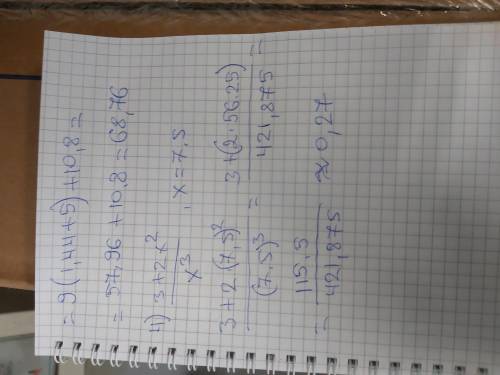 = 9(1,44+5)+10,8 =
= 57,96+10,8 = 68,76
4) (3+2x²)/x³, x = 7,5
(3+2·(7,5)²)/(7,5)³ = (3+(2·56.25))/421,875 =
= 115,5/421,875 ≈ 0,27